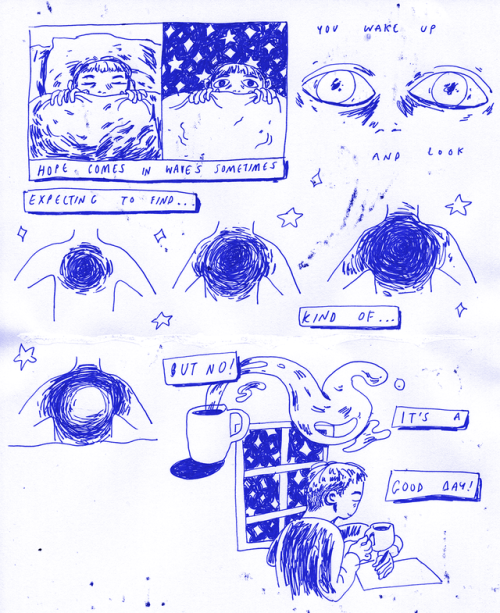 HOPE COMES IN WAVES SOMETIMES
YOU WAKE UP
AND LOOK
EXPECTING TO FIND...
KIND OF...
BUT NO!
IT'S A
GOOD DAY!